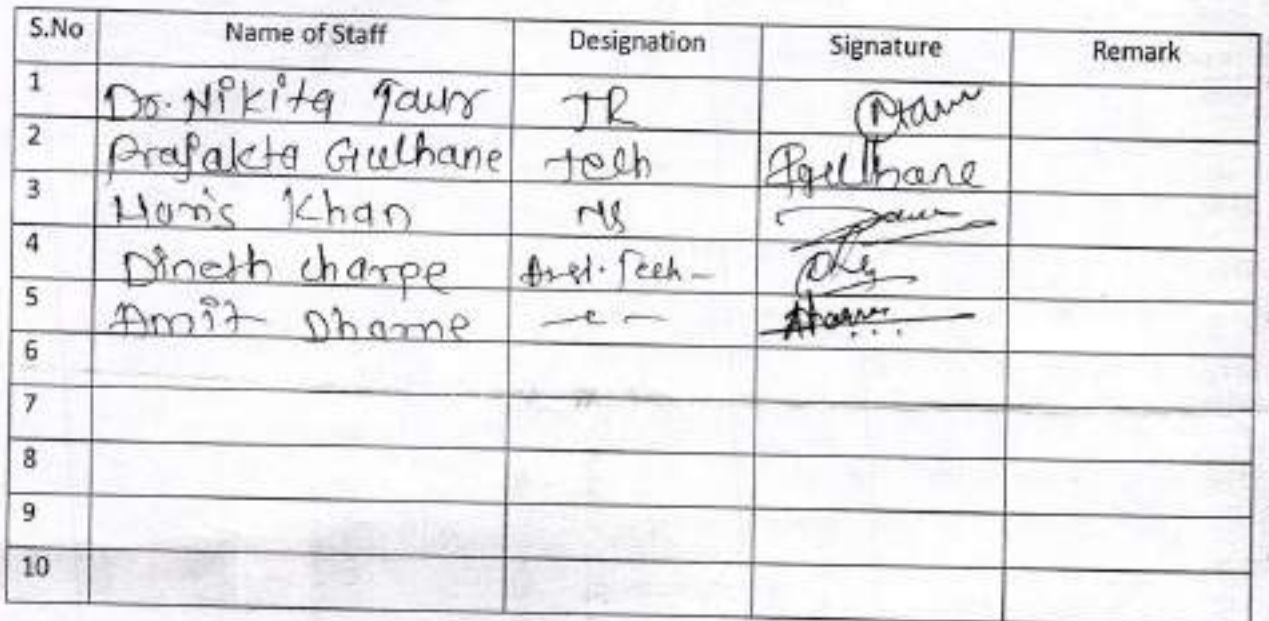 S.No Name of Staff Designation Signature Remark
1 Dr. Nikita Taur JR Ntaur
2 Prajakta Gulhane Tech Pgulhane
3 Haris Khan
4 Dinesh Charpe Asst. Tech -
5 Amit Dhame
6
7
8
9
10